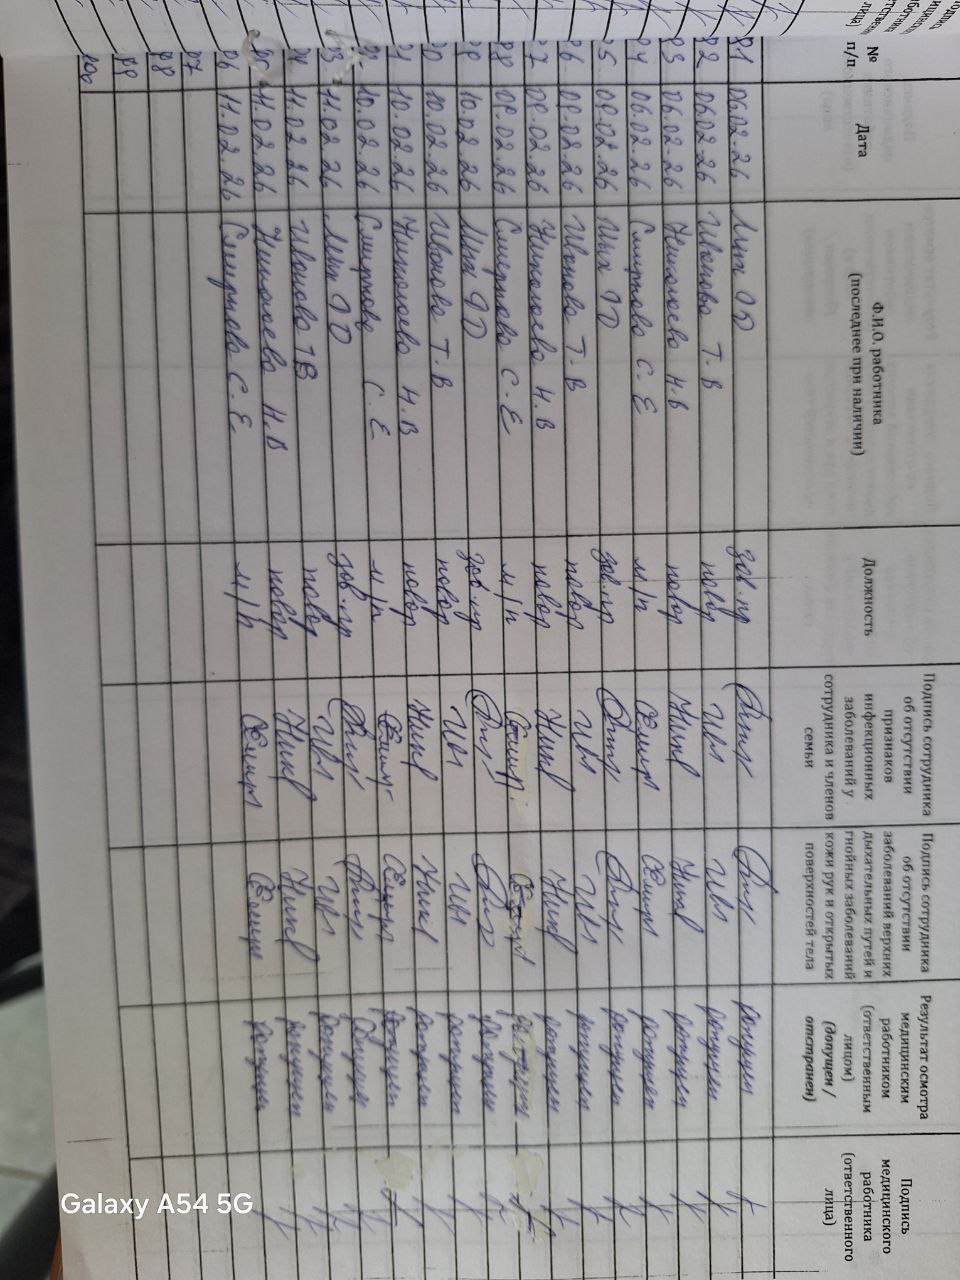 № п/п | Дата | Ф.И.О. работника (последнее при наличии) | Должность | Подпись сотрудника об отсутствии признаков инфекционных заболеваний у сотрудника и членов семьи | Подпись сотрудника об отсутствии заболеваний верхних дыхательных путей и гнойных заболеваний кожи рук и открытых поверхностей тела | Результат осмотра медицинским работником (ответственным лицом) (допущен / отстранен) | Подпись медицинского работника (ответственного лица)
81 06.02.26 зав.пр допущен
82 06.02.26 Иванова Т.В повар допущен
83 06.02.26 Николаева Н.В повар допущен
84 06.02.26 Смирнова С.Е м/п допущен
85 09.02.26 зав.пр допущен
86 09.02.26 Иванова Т.В повар допущен
87 09.02.26 Николаева Н.В повар допущен
88 09.02.26 Смирнова С.Е м/п допущен
89 10.02.26 зав.пр допущен
90 10.02.26 Иванова Т.В повар допущен
91 10.02.26 Николаева Н.В повар допущен
92 10.02.26 Смирнова С.Е м/п допущен
93 11.02.26 зав.пр допущен
94 11.02.26 Иванова ТВ повар допущен
95 11.02.26 Николаева Н.В повар допущен
96 11.02.26 Смирнова С.Е м/п допущен
97
98
99
100
Galaxy A54 5G